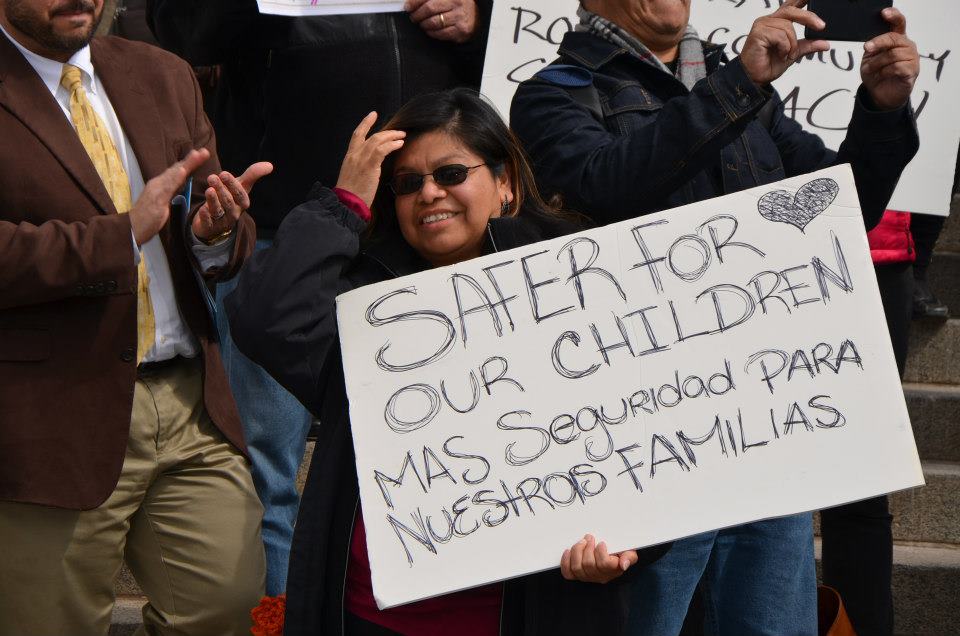 SAFER FOR
OUR CHILDREN
MAS Seguridad PARA
NUESTROS FAMILIAS